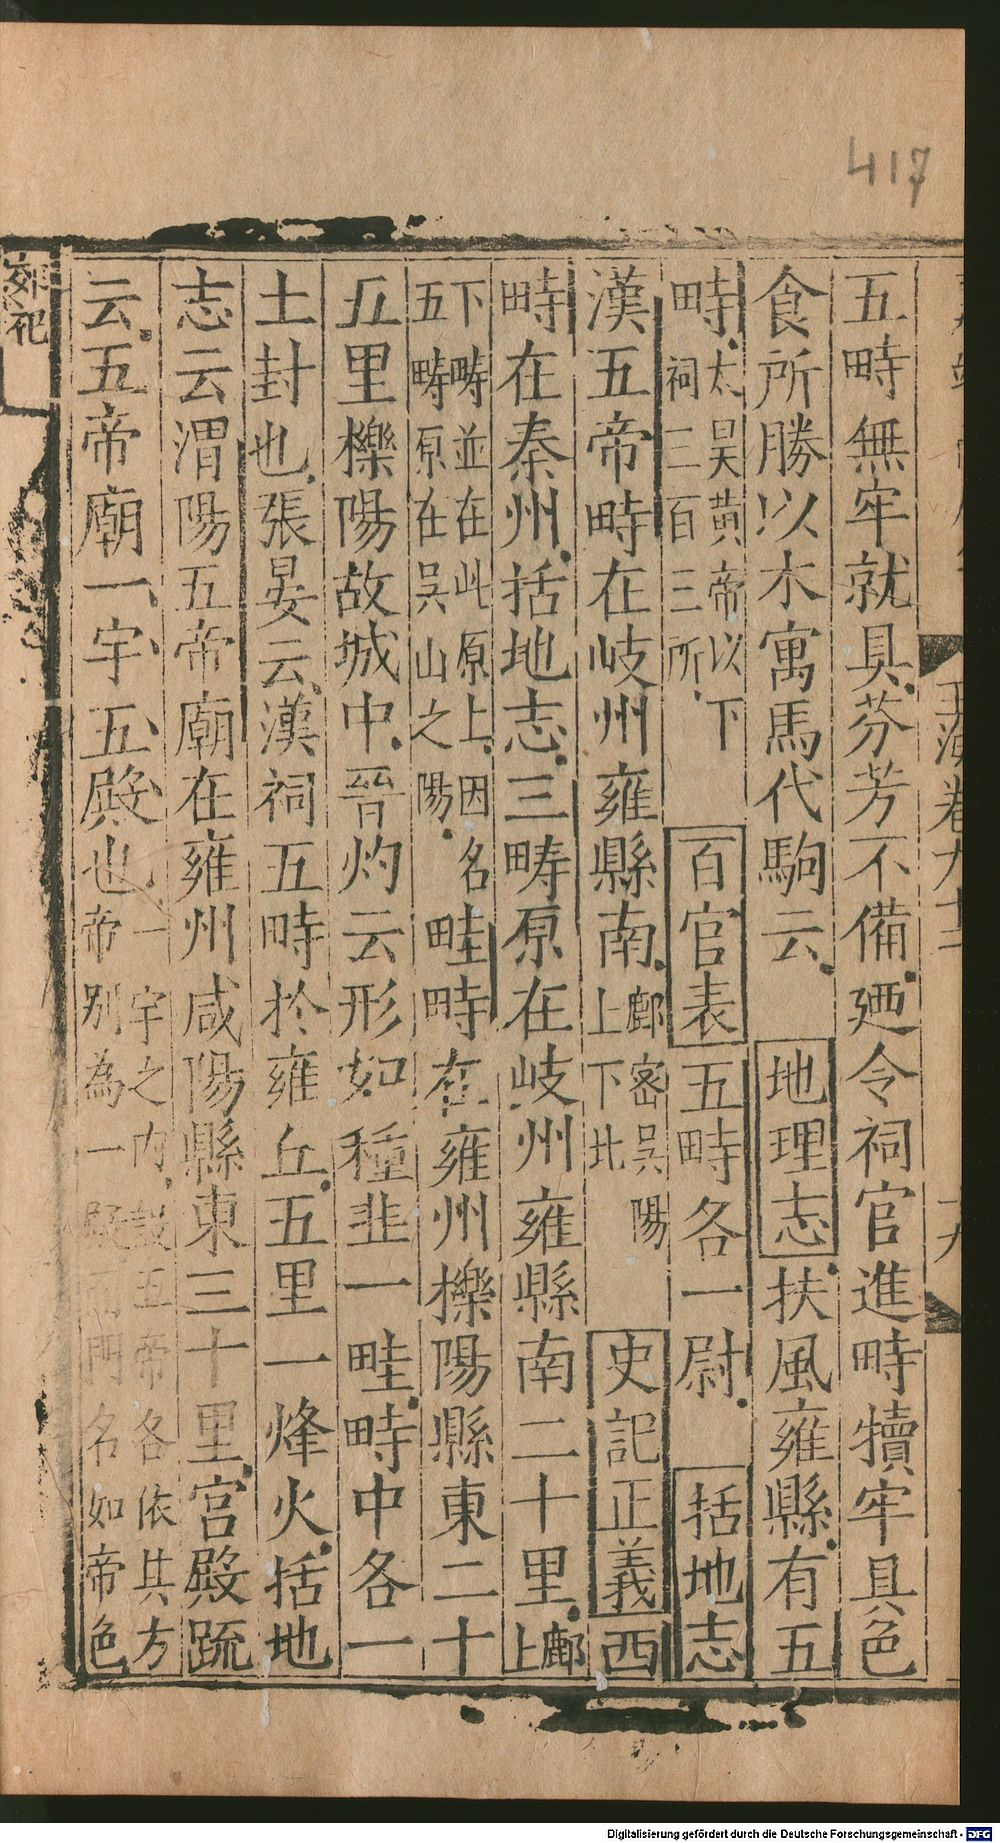 五畤無牢就具芬芳不備廼令祠官進畤犢牢具色
食所勝以木寓馬代駒云 地理志扶風雍縣有五
畤太昊黄帝以下祠三百三所 百官表五畤各一尉 括地志
漢五帝畤在岐州雍縣南鄜密吳陽上下北 史記正義西
畤在秦州括地志三畤原在岐州雍縣南二十里鄜上
下畤並在此原上因名五畤原在吳山之陽 畦畤在雍州櫟陽縣東二十
五里櫟陽故城中晉灼云形如種韭一畦畤中各一
土封也張晏云漢祠五畤於雍丘五里一烽火括地
志云渭陽五帝廟在雍州咸陽縣東三十里宮殿䟽
云五帝廟一宇五殿也一宇之内設五帝各依其方帝別為一殿而門名如帝色
郊祀
玉海卷九十二
十九
417
Digitalisierung gefördert durch die Deutsche Forschungsgemeinschaft - DFG